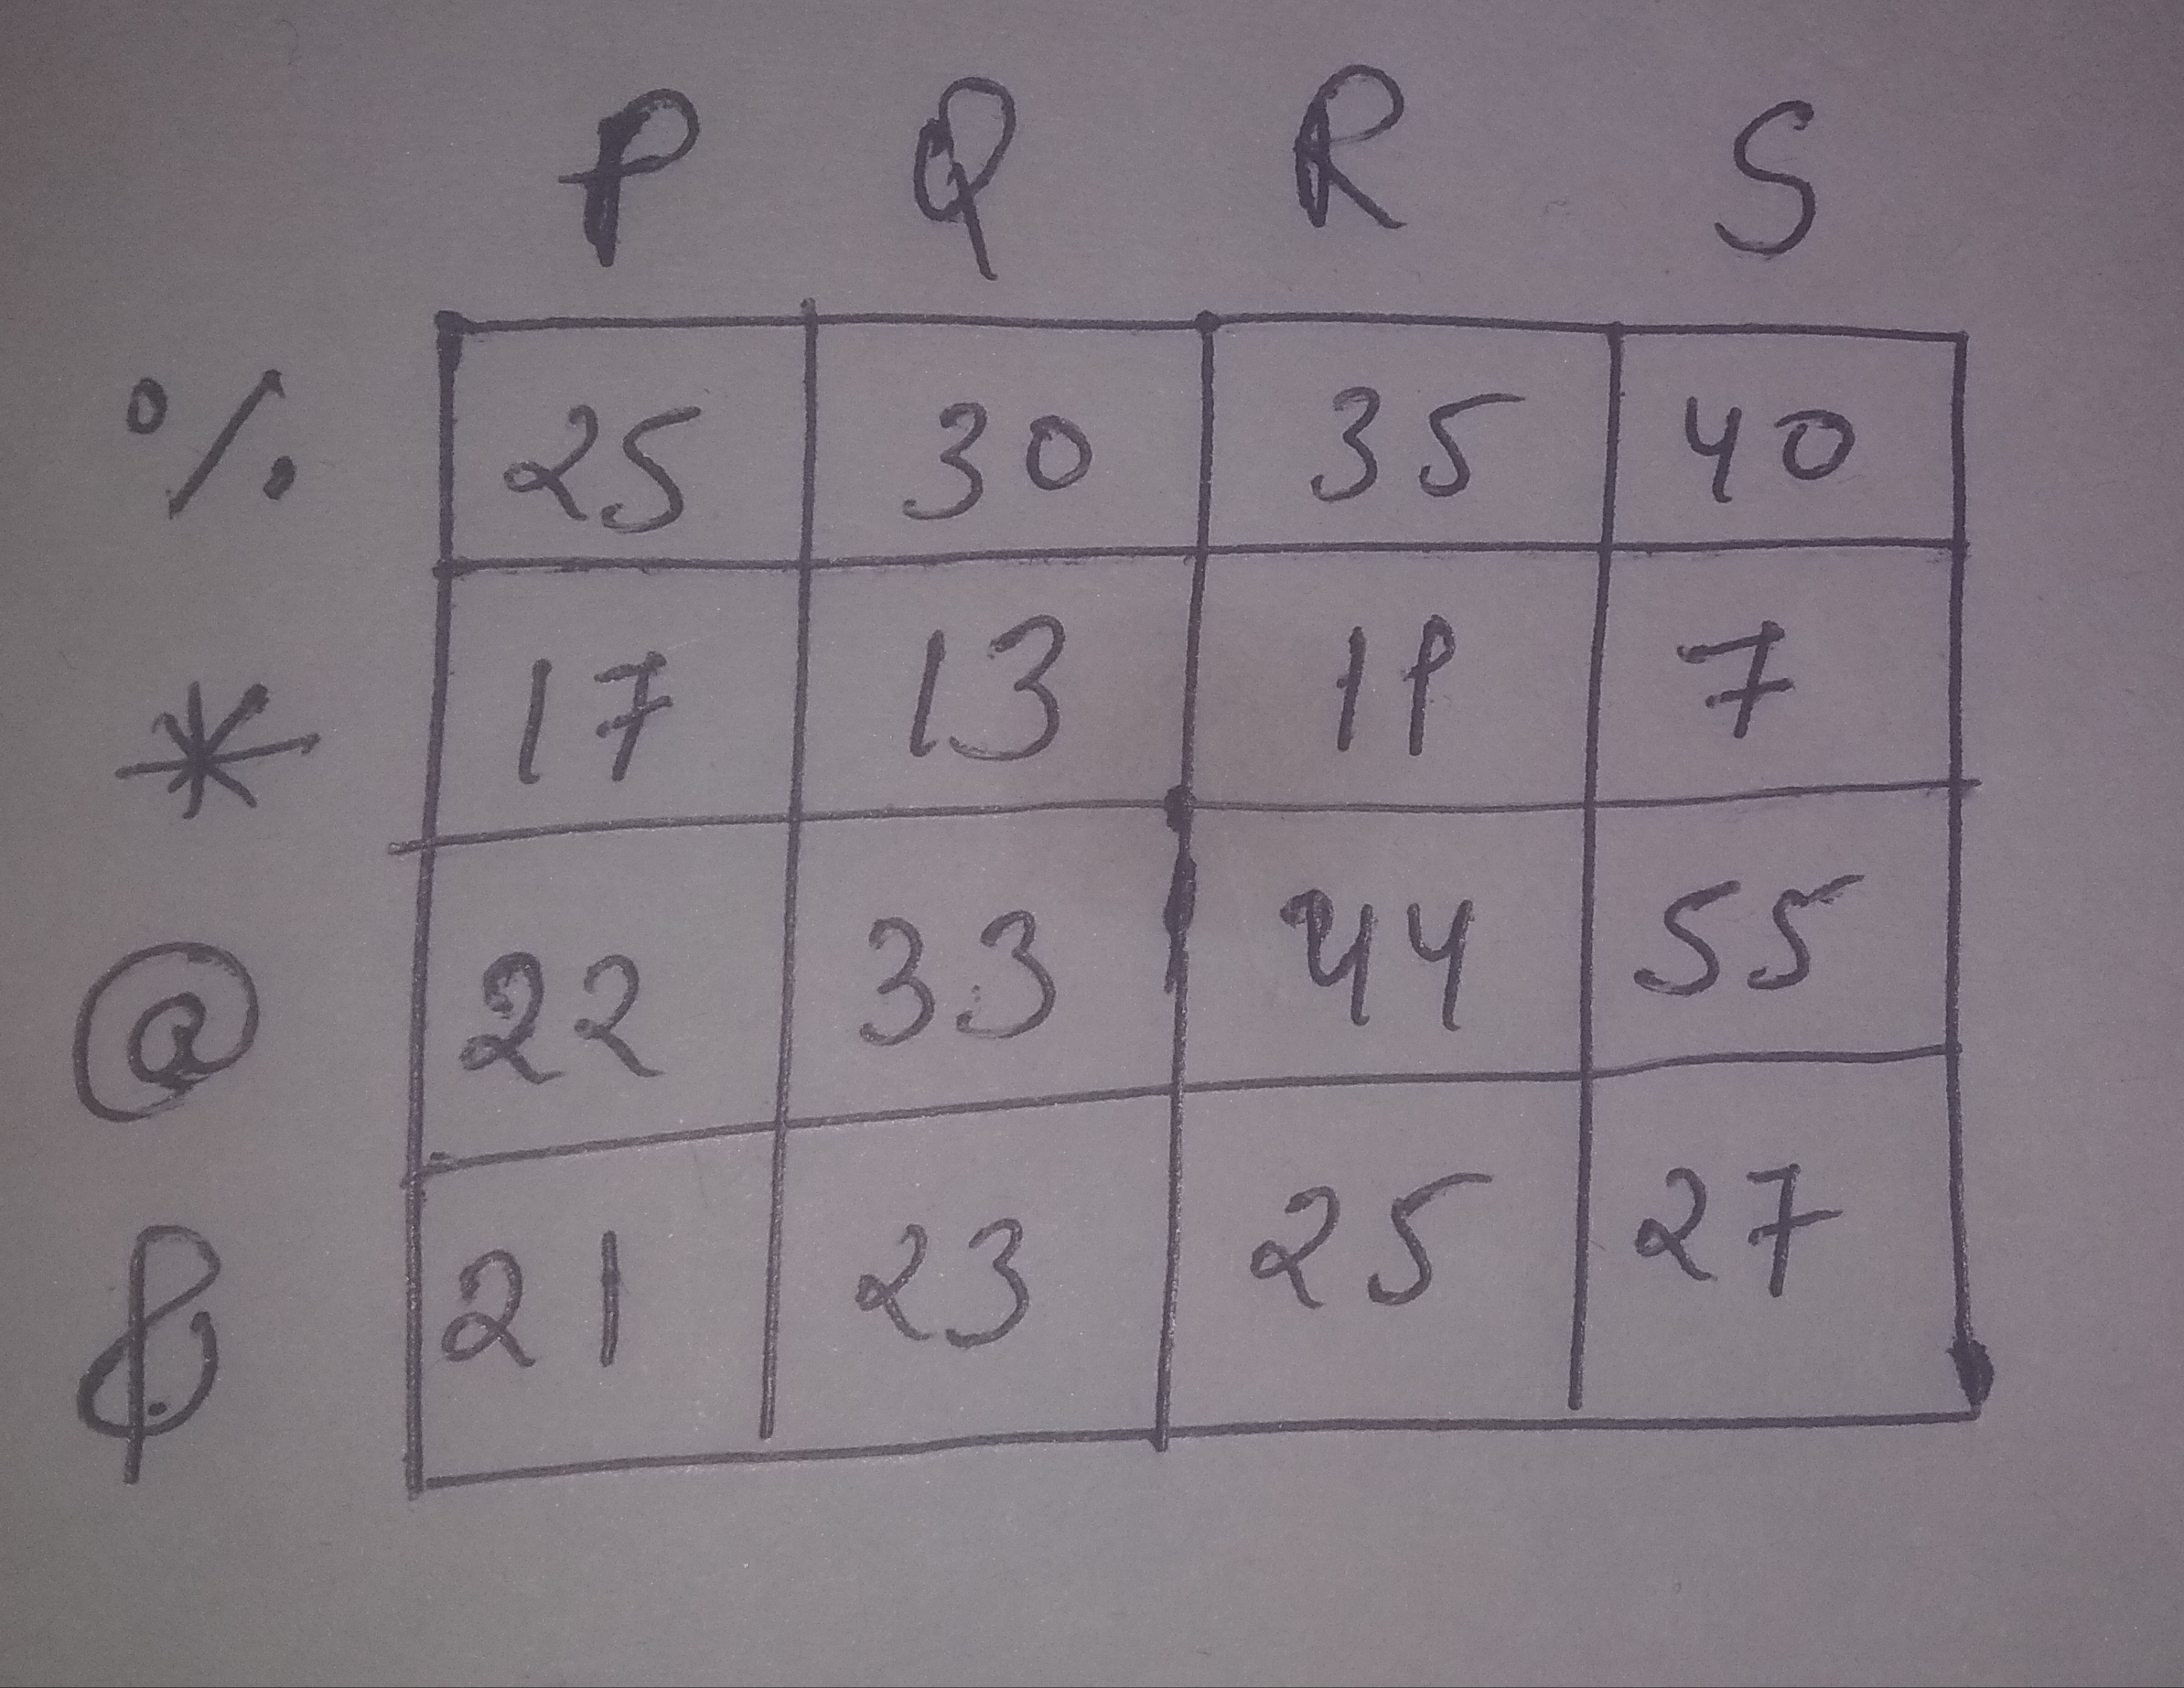 P Q R S
% 25 30 35 40
* 17 13 7
@ 22 33 44 55
$ 21 23 25 27